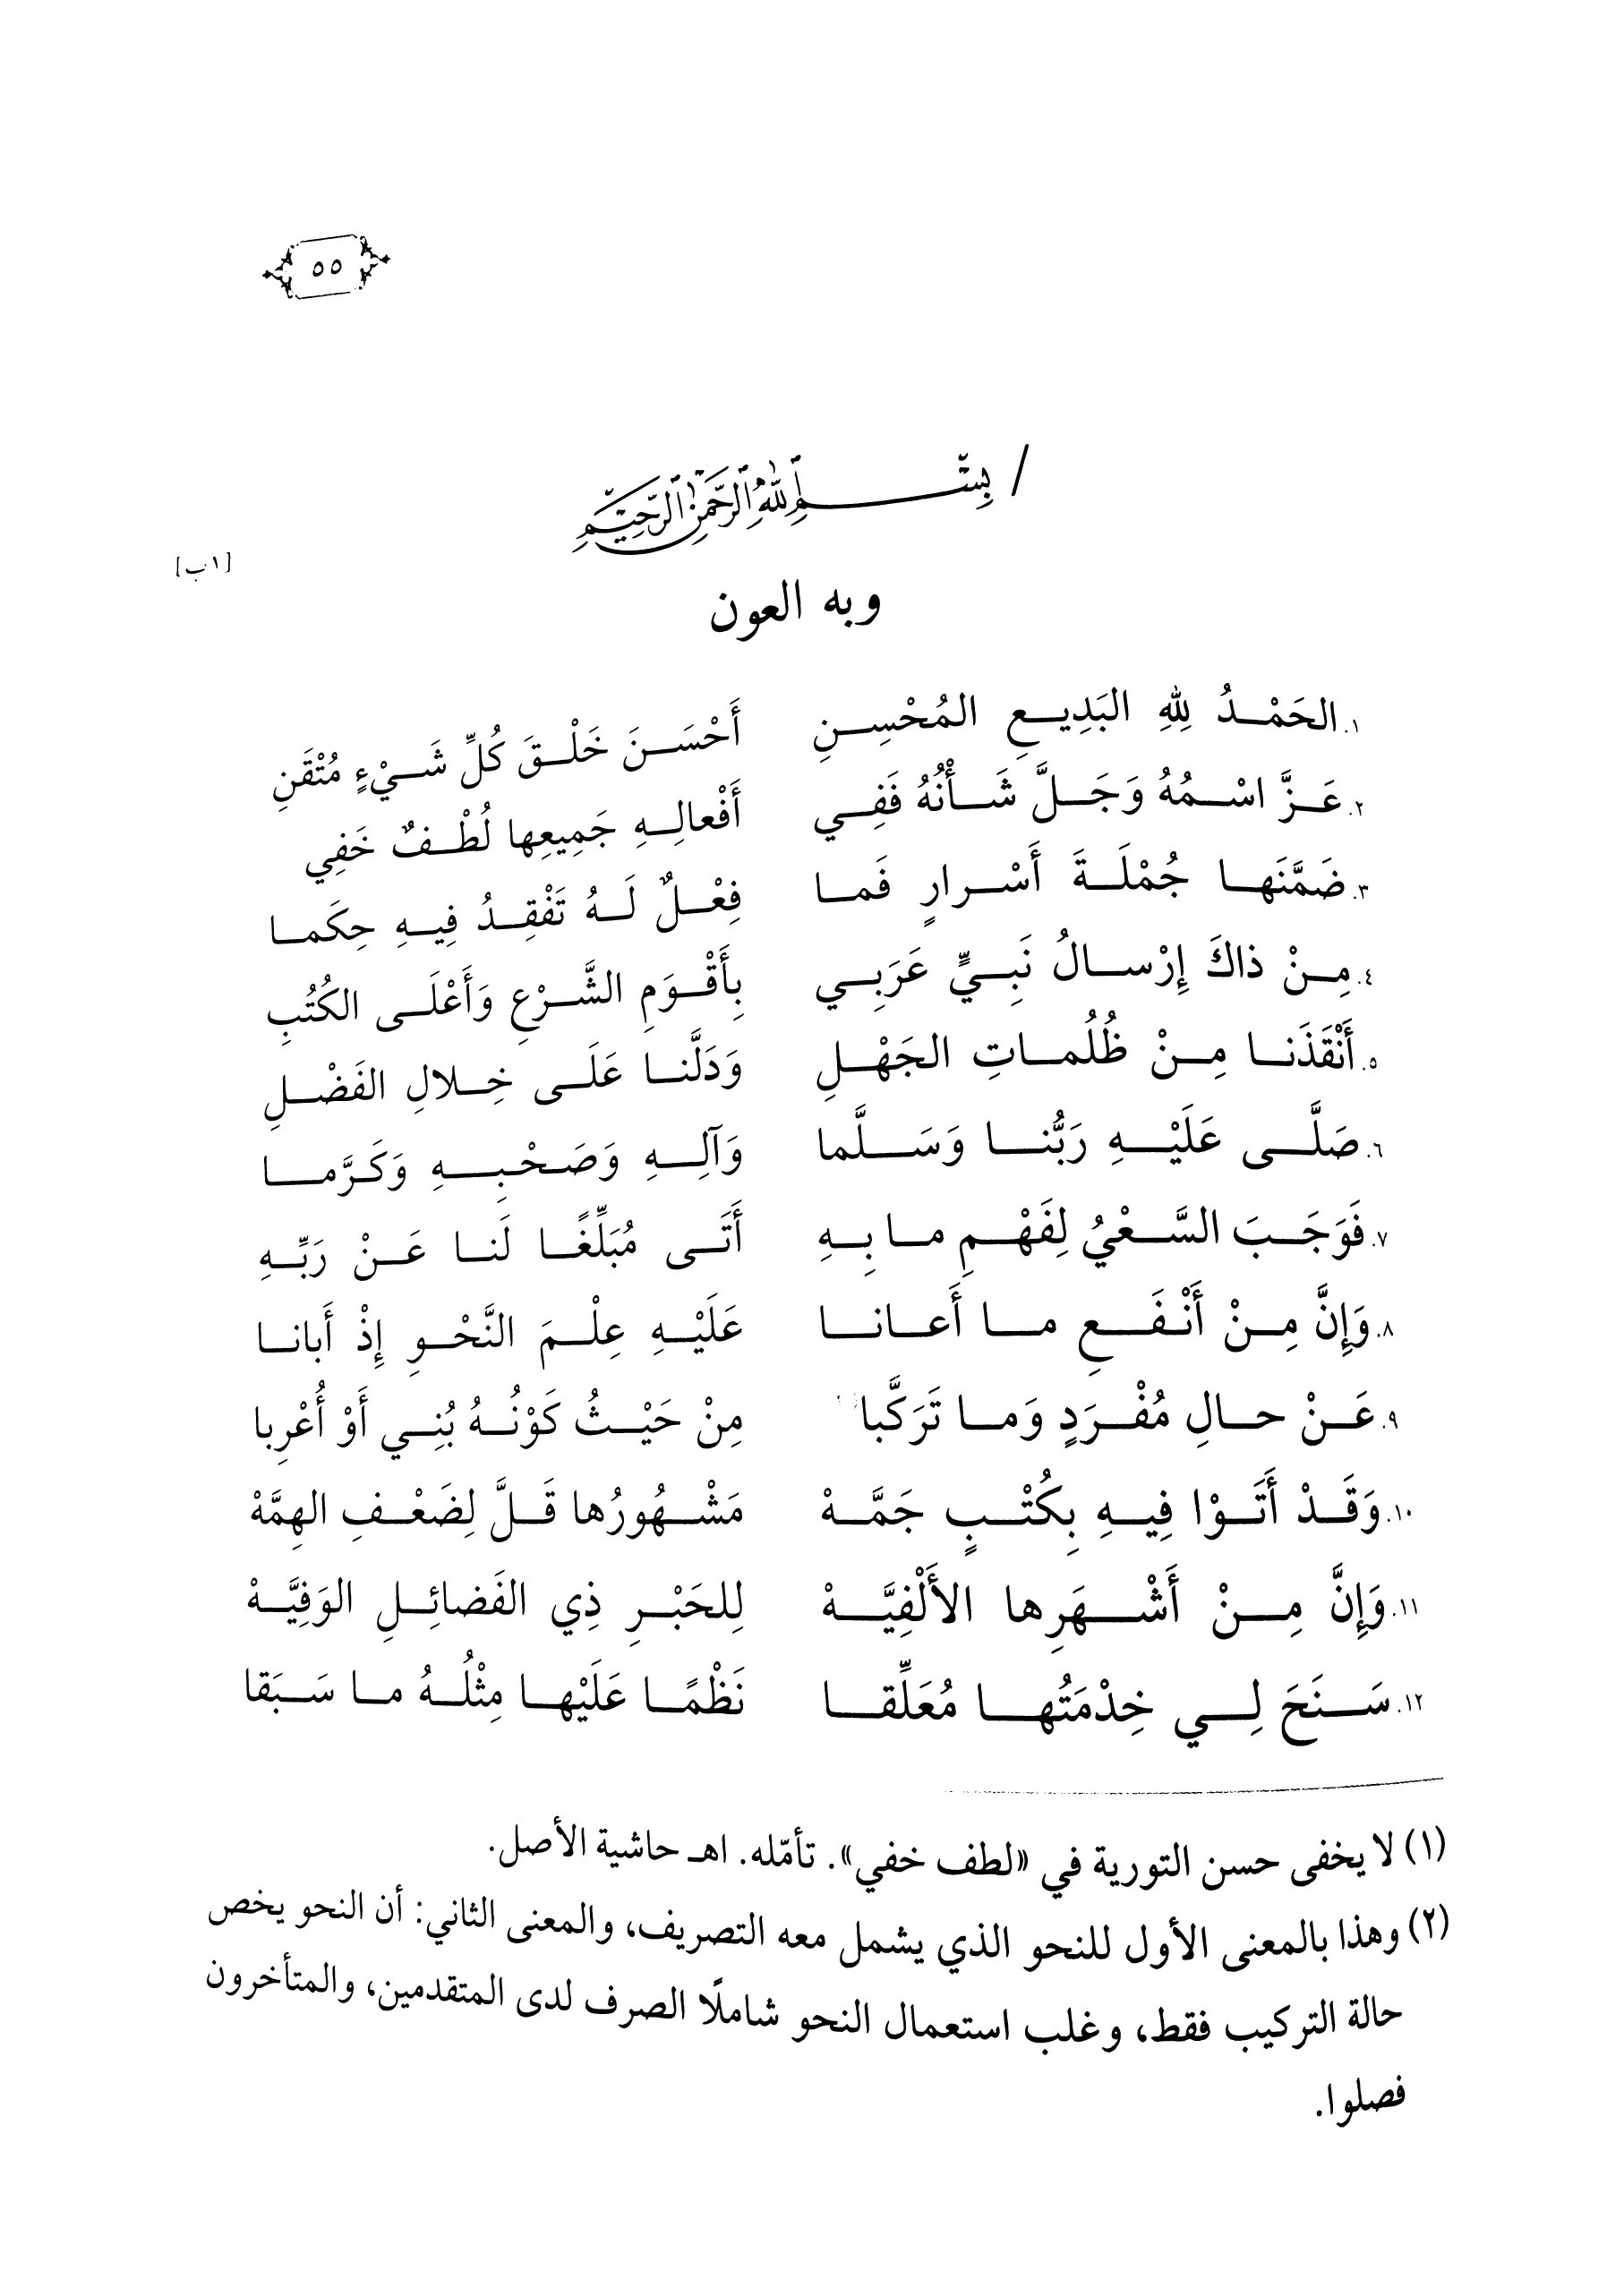 ٥٥
/ بِسْمِ اللَّهِ الرَّحْمَٰنِ الرَّحِيمِ
[١ب]
وبه العون
١. الحَمْدُ لِلَّهِ البَدِيعِ المُحْسِنِ أَحْسَنَ خَلْقَ كُلِّ شَيْءٍ مُتْقَنِ
٢. عَزَّ اسْمُهُ وَجَلَّ شَأْنُهُ فَفِي أَفْعالِهِ جَمِيعِها لُطْفٌ خَفِي
٣. ضَمَّنَها جُمْلَةَ أَسْرارٍ فَما فِعْلٌ لَهُ تَفْقِدُ فِيهِ حِكَما
٤. مِنْ ذاكَ إِرْسالُ نَبِيٍّ عَرَبِي بِأَقْوَمِ الشَّرْعِ وَأَعْلَى الكُتُبِ
٥. أَنْقَذَنا مِنْ ظُلُماتِ الجَهْلِ وَدَلَّنا عَلَى خِلالِ الفَضْلِ
٦. صَلَّى عَلَيْهِ رَبُّنا وَسَلَّما وَآلِهِ وَصَحْبِهِ وَكَرَّما
٧. فَوَجَبَ السَّعْيُ لِفَهْمِ ما بِهِ أَتَى مُبَلِّغًا لَنا عَنْ رَبِّهِ
٨. وَإِنَّ مِنْ أَنْفَعِ ما أَعانا عَلَيْهِ عِلْمَ النَّحْوِ إِذْ أَبانا
٩. عَنْ حالِ مُفْرَدٍ وَما تَرَكَّبا مِنْ حَيْثُ كَوْنُهُ بُنِي أَوْ أُعْرِبا
١٠. وَقَدْ أَتَوْا فِيهِ بِكُتْبٍ جَمَّهْ مَشْهُورُها قَلَّ لِضَعْفِ الهِمَّهْ
١١. وَإِنَّ مِنْ أَشْهَرِها الأَلْفِيَّهْ لِلحَبْرِ ذِي الفَضائِلِ الوَفِيَّهْ
١٢. سَنَحَ لِي خِدْمَتُها مُعَلِّقا نَظْمًا عَلَيْها مِثْلُهُ ما سَبَقا
(١) لا يخفى حسن التورية في «لطف خفي». تأمّله. اهـ حاشية الأصل.
(٢) وهذا بالمعنى الأول للنحو الذي يشمل معه التصريف، والمعنى الثاني: أن النحو يخص
حالة التركيب فقط، وغلب استعمال النحو شاملًا الصرف لدى المتقدمين، والمتأخرون
فصلوا.